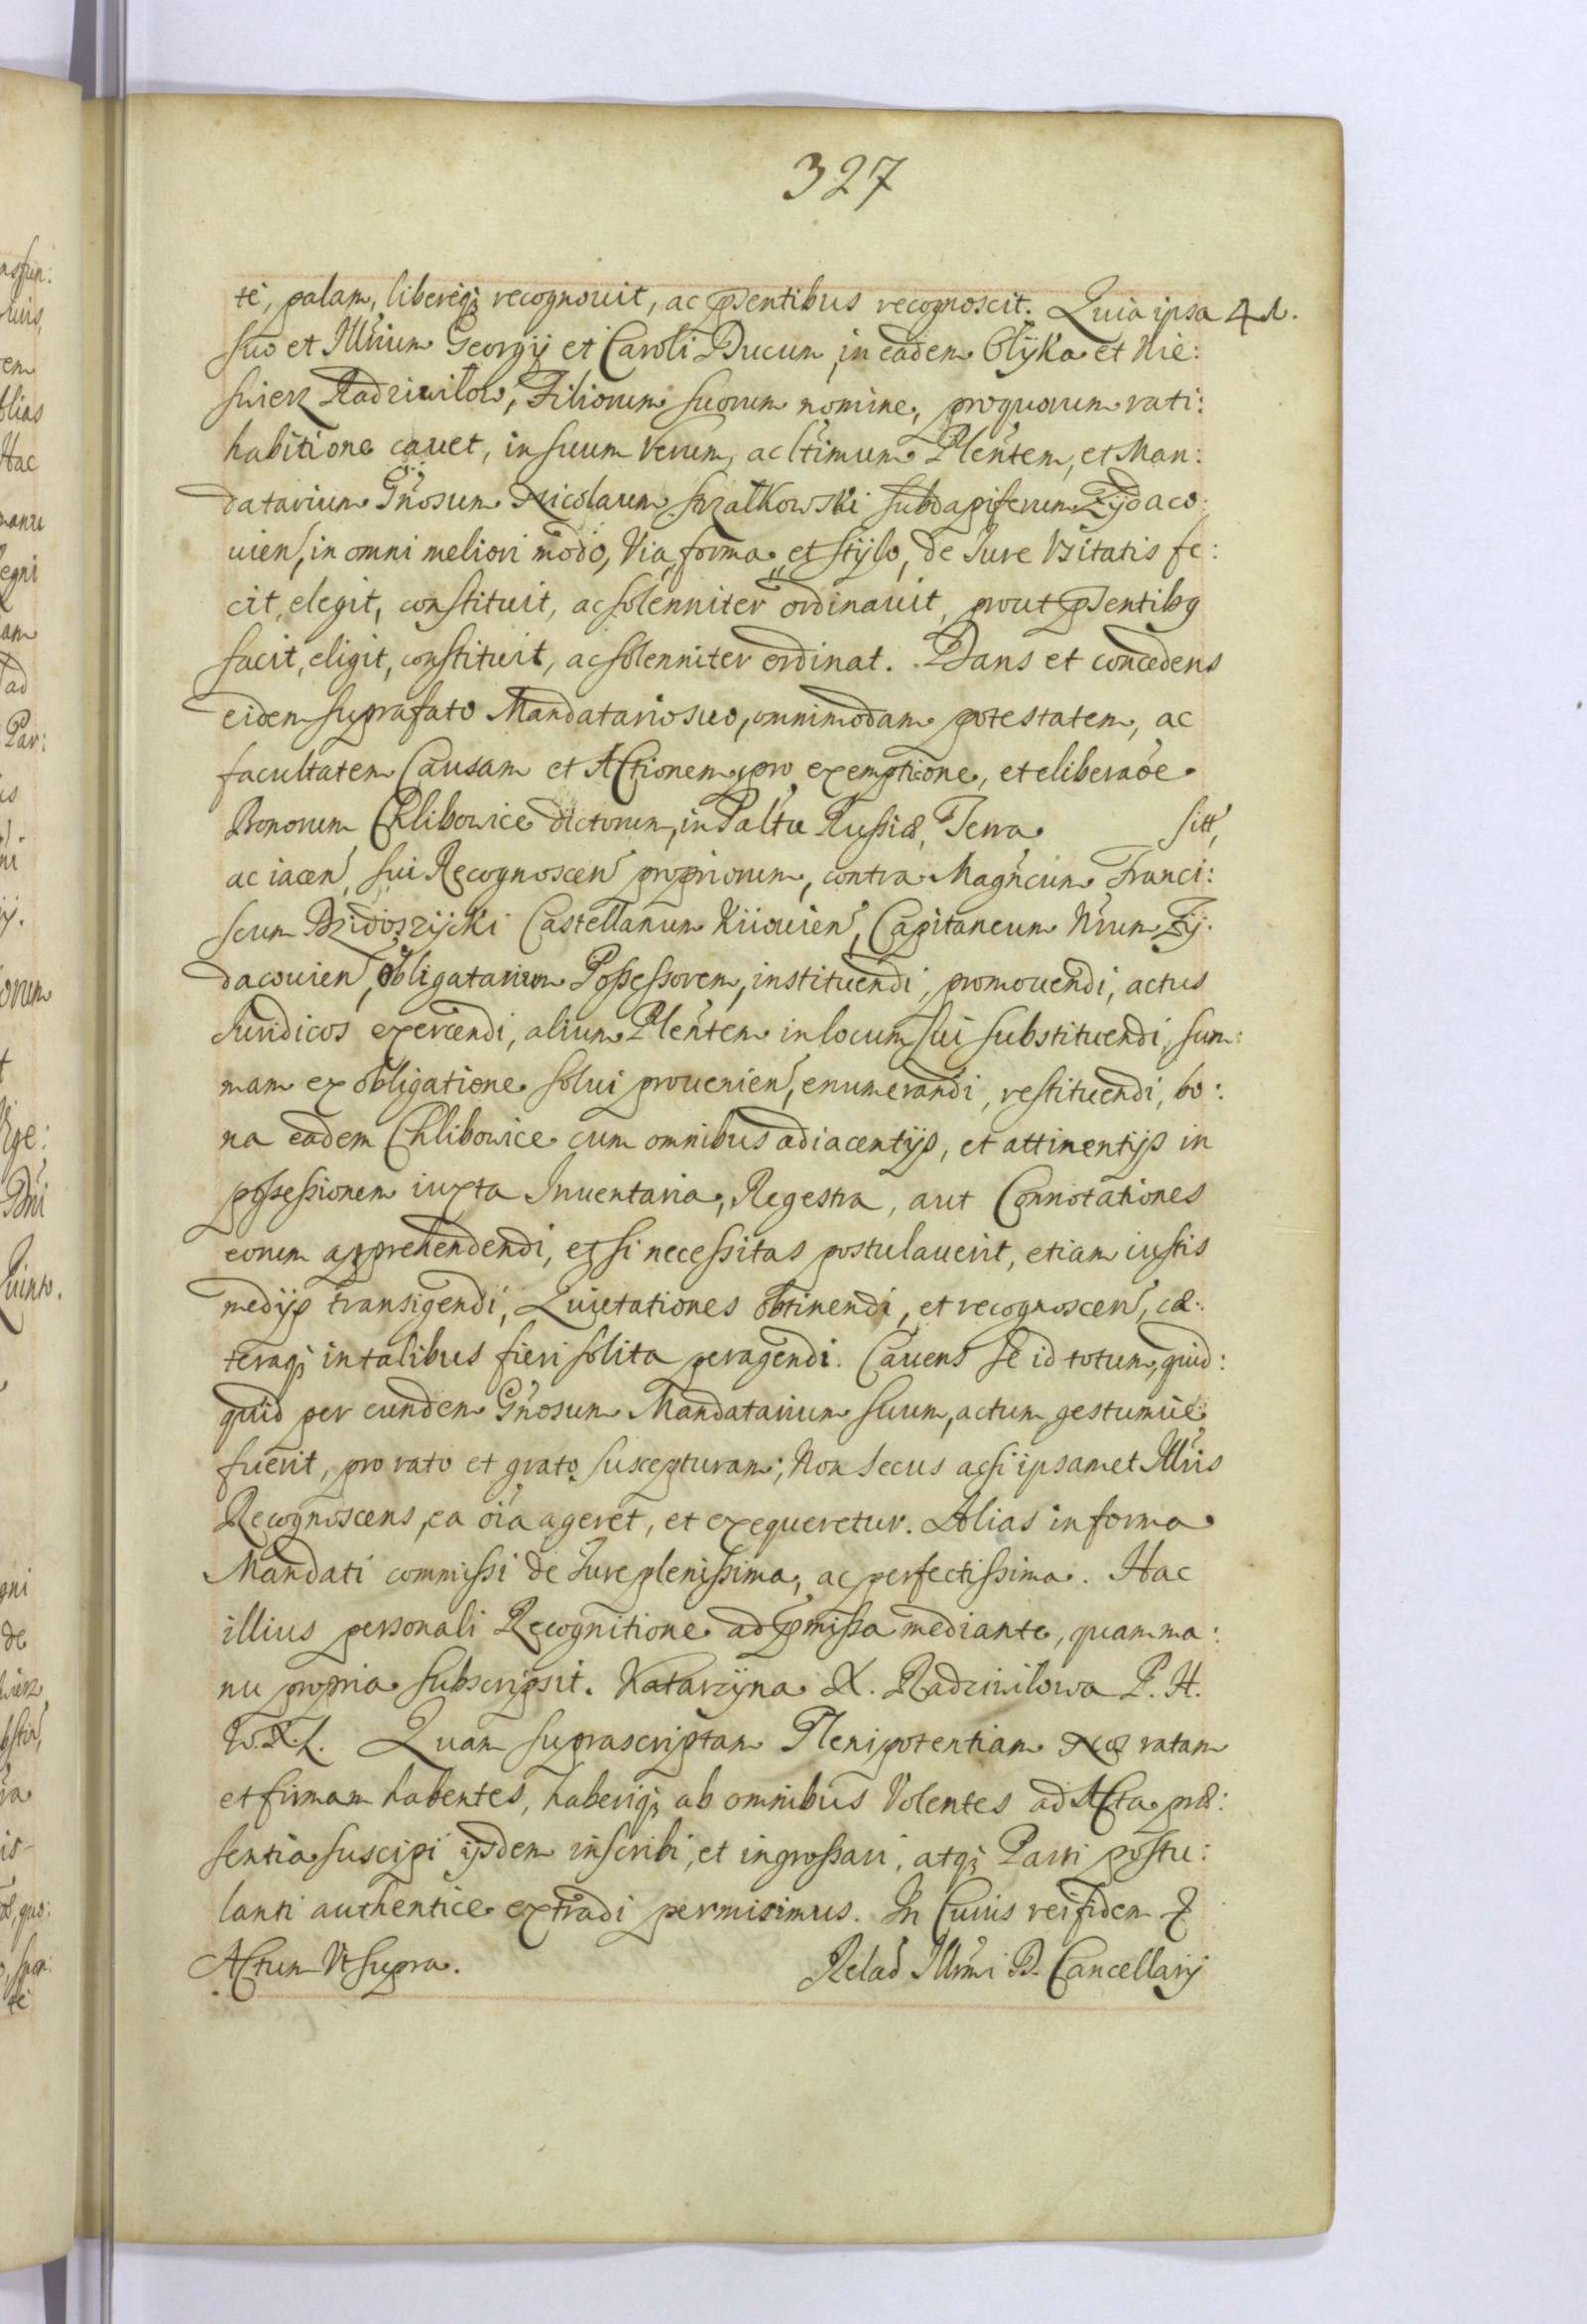 327
te, palam, libereq; recognouit, ac pñtibus recognoscit. Quia ipsa
suo et Illrium Georgij et Caroli Ducum, in eadem Olÿka et Nie:
swierz Radziwilow, Filiorum suorum nomine, pro quorum rati:
habitione cauet, in suum Verum, ac ltimum Plentem, et Man:
datarium Gñosum Nicolaum Strzałkowski Subdapiferum Zÿdaco:
uien, in omni meliori modo, Via, forma, et stÿlo, de Iure Vsitatis fe:
cit, elegit, constituit, ac solenniter ordinauit, prout pñtibg
facit, eligit, constituit, ac solenniter ordinat. Dans et concedens
eidem suprafato Mandatario suo, omnimodam potestatem, ac
facultatem Causam et Actionem, pro exemptione, et eliberaõe
Bonorum Chlibowice dictorum, in Paltu Russiæ, Terra sitt,
ac iacen, sui Recognoscen propriorum, contra Magñcum Franci:
scum Dzidoszÿcki Castellanum Kiiouien, Capitaneum Nrum Zÿ:
dacouien, obligatarium Possessorem, instituendi, promouendi, actus
Iuridicos exercendi, alium Plentem in locum sui substituendi, sum:
mam ex obligatione solui prouenien, enumerandi, restituendi, bo:
na eadem Chlibowice cum omnibus adiacentijs, et attinentijs in
possessionem iuxta Inuentaria, Regestra, aut Connotationes
eorum apprehendendi, et si necessitas postulauerit, etiam iustis
medijs transigendi, Quietationes obtinendi, et recognoscen, cæ:
teraq; in talibus fieri solita peragendi. Cauens se id totum, quid:
quid per eundem Gñosum Mandatarium suum, actum gestumue
fuerit, pro rato et grato suscepturam; Non secus acsi ipsamet Illris
Recognoscens, ea oia ageret, et exequeretur. Alias in forma
Mandati commissi de Iure plenissima, ac perfectissima. Hac
illius personali Recognitione ad pmissa mediante, quam ma:
nu propria subscripsit. Katarzÿna X. Radziwilowa P. H.
W. X. L. Quam suprascriptam Plenipotentiam Nos ratam
et firmam habentes, haberiq; ab omnibus Volentes ad Acta præ:
sentia suscipi ijsdem inscribi, et ingrossari, atq; Parti postu:
lanti authentice extradi permisimus. In Cuius rei fidem &
Actum Vt supra. Relaõ Illrmi D. Cancellarij